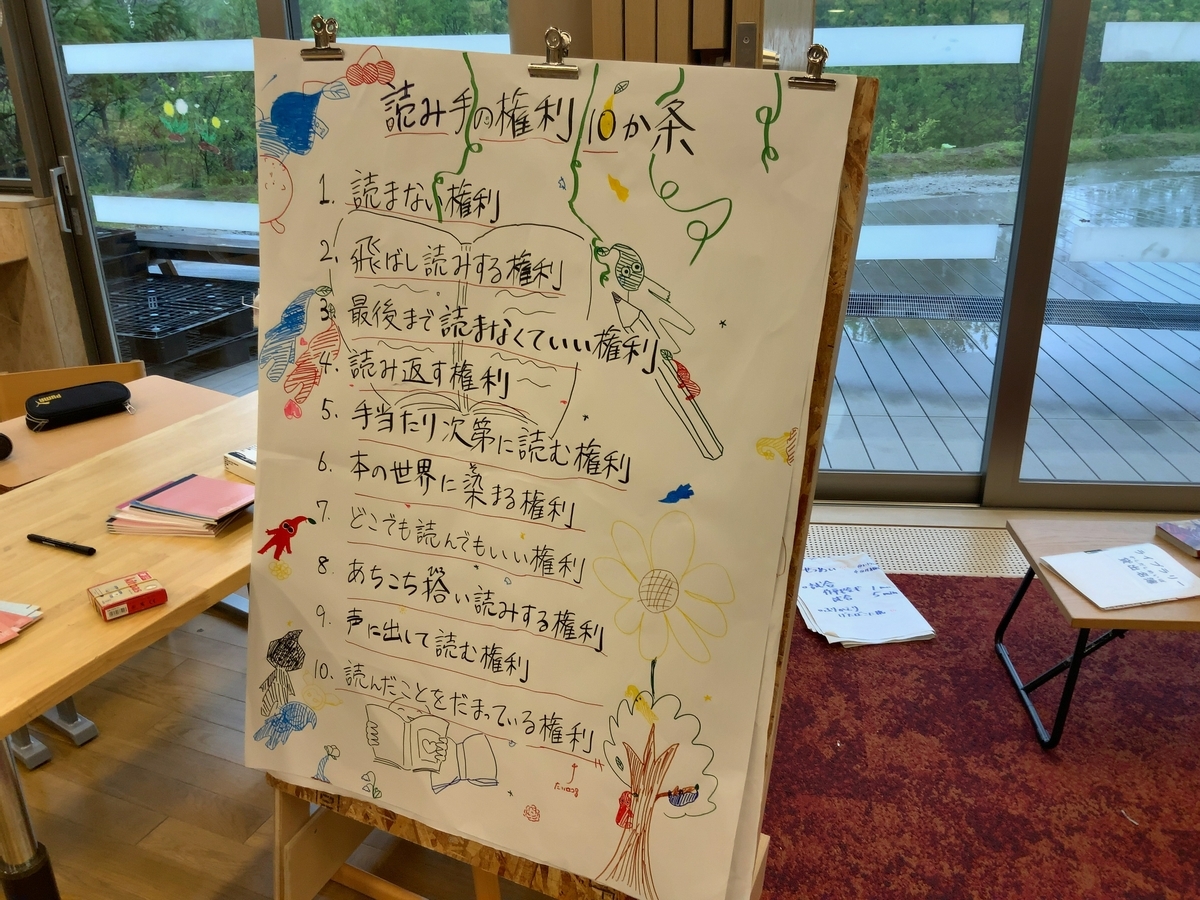 読み手の権利10か条
1. 読まない権利
2. 飛ばし読みする権利
3. 最後まで読まなくていい権利
4. 読み返す権利
5. 手当たり次第に読む権利
6. 本の世界に染まる権利
7. どこでも読んでもいい権利
8. あちこち拾い読みする権利
9. 声に出して読む権利
10. 読んだことをだまっている権利
PUMA
ライブラリー